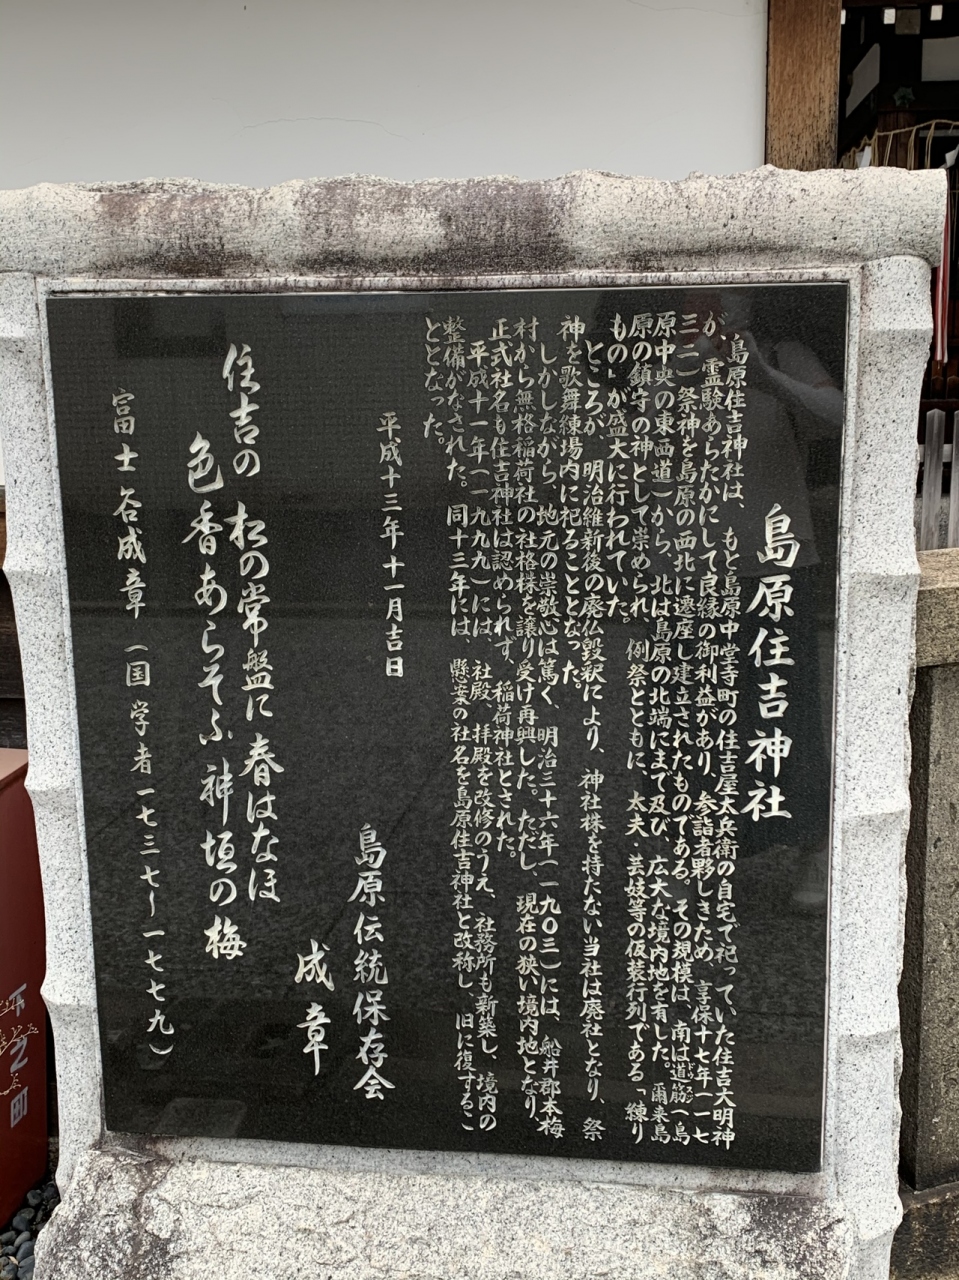 島原住吉神社
島原住吉神社は、もと島原中堂寺町の住吉屋太兵衛の自宅で祀っていた住吉大明神
が、霊験あらたかにして良縁の御利益があり、参詣者夥しきため、享保十七年(一七
三二)祭神を島原の西北に遷座し建立されたものである。その規模は、南は道筋(島
原中央の東西道)から、北は島原の北端にまで及び、広大な境内地を有した。爾来島
原の鎮守の神として崇められ、例祭とともに、太夫・芸妓等の仮装行列である「練り
もの」が盛大に行われていた。
ところが、明治維新後の廃仏毀釈により、神社株を持たない当社は廃社となり、祭
神を歌舞練場内に祀ることとなった。
しかしながら、地元の崇敬心は篤く、明治三十六年(一九〇三)には、船井郡本梅
村から無格稲荷社の社格株を譲り受け再興した。ただし、現在の狭い境内地となり、
正式社名も住吉神社は認められず、稲荷神社とされた。
平成十一年(一九九九)には、社殿、拝殿を改修のうえ、社務所も新築し、境内の
整備がなされた。同十三年には、懸案の社名を島原住吉神社と改称し、旧に復するこ
ととなった。
平成十三年十一月吉日
島原伝統保存会
成章
住吉の 松の常盤に 春はなほ
色香あらそふ 神垣の梅
富士谷成章(国学者一七三七〜一七七九)